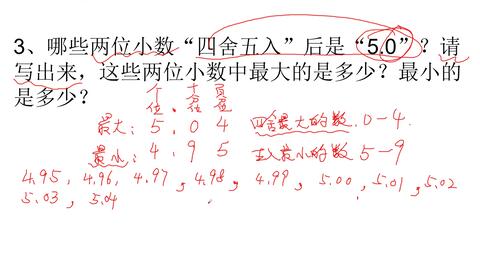 3、哪些两位小数“四舍五入”后是“5.0”？请
写出来，这些两位小数中最大的是多少？最小的
是多少？
个 十 百
位 . 分位 分位
最大：5 . 0 4 四舍最大的数.0-4.
最小：4 . 9 5 五入最小的数 5-9
4.95, 4.96, 4.97, 4.98, 4.99, 5.00, 5.01, 5.02
5.03, 5.04